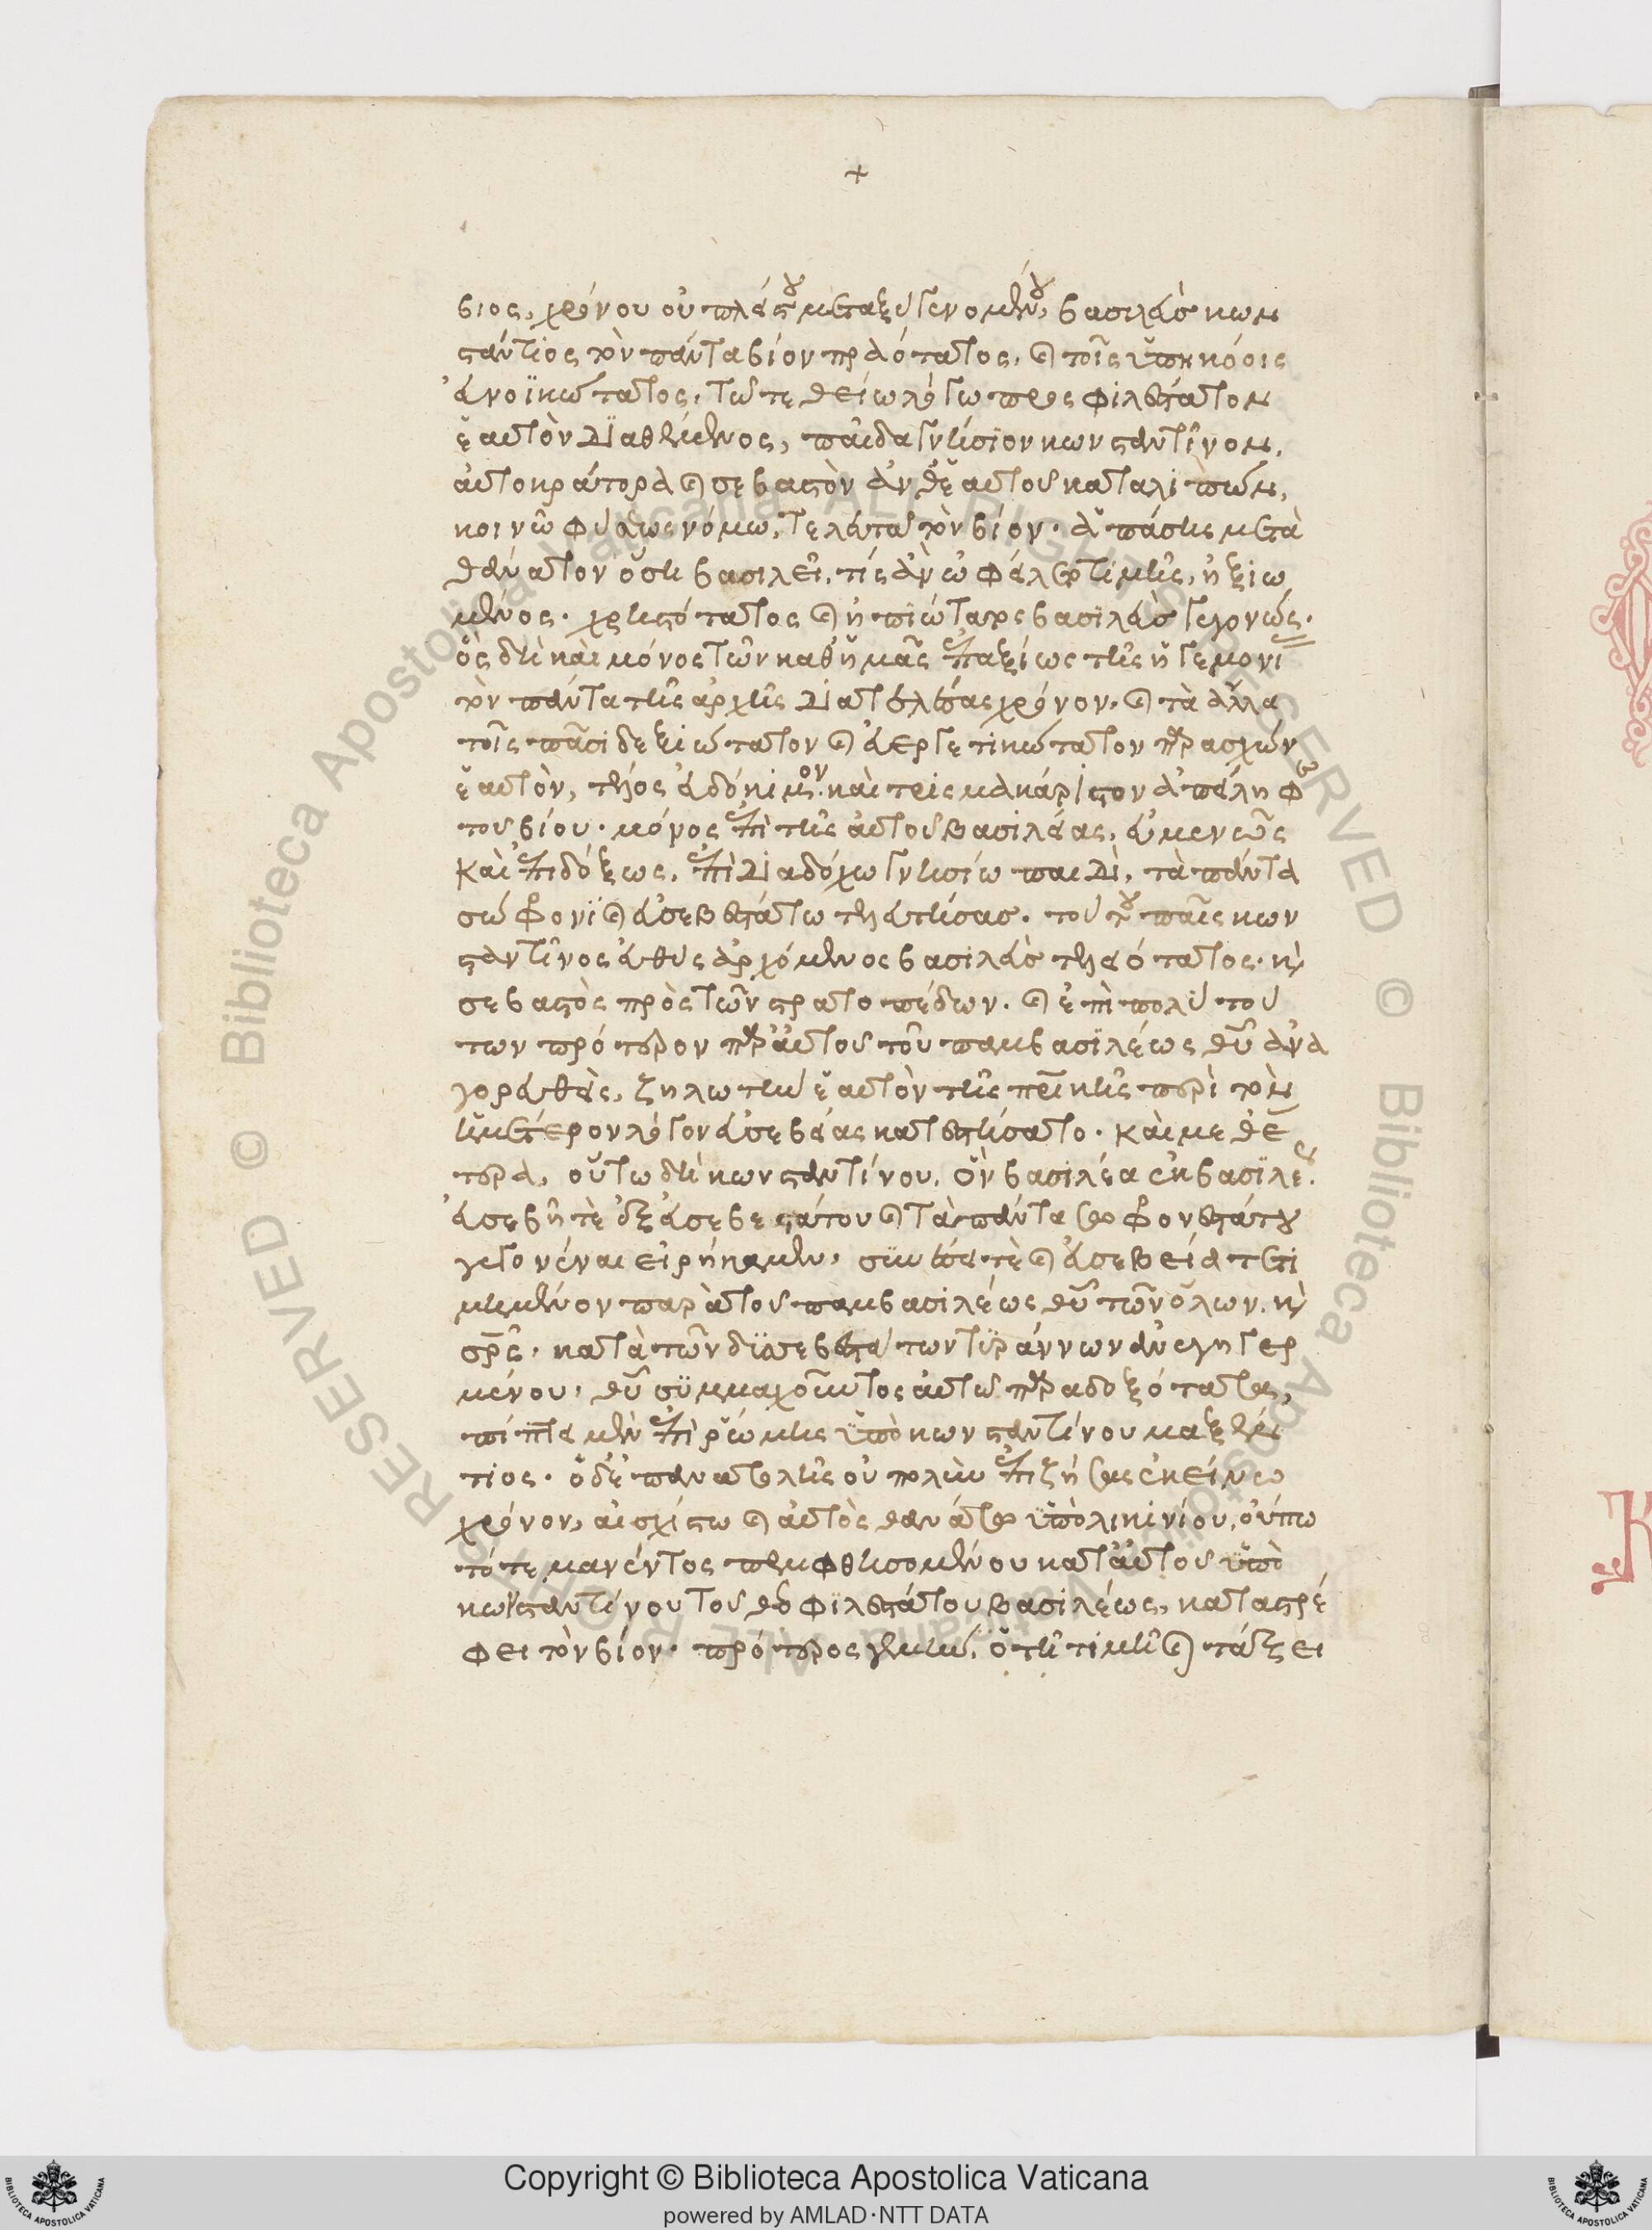 +
βιος, χρόνου οὐ πλείστου μεταξὺ γενομένου, βασιλεὺς κων
στάντιος τὸν πάντα βίον πραότατος, καὶ τοῖς ὑπηκόοις
εὐνοϊκώτατος, τῶ τε θείω λόγω προς φιλέστατον
ἑαυτὸν διαθέμενος, παῖδα γνήσιον κωνσταντῖνον,
αὐτοκράτορα καὶ σεβαστὸν ἀνθ' ἑαυτοῦ καταλιπὼν,
κοινῶ φύσεως νόμω, τελευτᾶ τὸν βίον. ἁπάσης μετὰ
θάνατον ὅση βασιλεῖ, τίς ἂν ὠφείλετο τιμῆς, ἠξιω
μένος. χρηστότατος καὶ ἠπιώτατος βασιλεὺς γεγονώς.
ὃς δὴ καὶ μόνος τῶν καθ' ἡμᾶς ἐπαξίως τῆς ἡγεμονί
τὸν πάντα τῆς ἀρχῆς διατελέσας χρόνον. καὶ τὰ ἄλλα
τοῖς πᾶσι δεξιώτατον καὶ εὐεργετικώτατον παρασχὼν
ἑαυτὸν, τέλος εὐδόκιμον καὶ τρισμακάριστον ἀπείληφε
τοῦ βίου. μόνος ἐπὶ τῆς αὐτοῦ βασιλείας, εὐμενῶς
καὶ ἐπιδόξως, ἐπὶ διαδόχω γνησίω παιδὶ, τὰ πάντα
σώφρονι καὶ εὐσεβεστάτω τελευτήσας. τούτου παῖς κων
σταντῖνος εὐθὺς ἀρχόμενος βασιλεὺς τελεώτατος. καὶ
σεβαστὸς πρὸς τῶν στρατοπέδων. καὶ ἐπὶ πολὺ τού
των πρότερον παρ' αὐτοῦ τοῦ παμβασιλέως θυ ἀνα
γορευθεὶς, ζηλωτὴν ἑαυτὸν τῆς πρικῆς περὶ τὸν
ἡμέτερον λόγον εὐσεβείας κατεστήσατο. καὶ μεθ' ἕ
τερα, οὕτω δὴ κωνσταντίνου, ὃν βασιλέα ἐκ βασιλέως.
εὐσεβῆ τὲ ἐξ εὐσεβεστάτου καὶ τὰ πάντα σωφρονεστάτου
γεγονέναι εἰρήκαμεν, συνέσει τὲ καὶ εὐσεβεία τετι
μημένον παρὰ τοῦ παμβασιλέως θυ τῶν ὅλων. καὶ
σρς. κατὰ τῶν δυσσεβεστάτων τυράννων ἀνεγηγερ
μένου, θυ συμμαχοῦντος αὐτῶ παραδοξότατα,
πίπτει μὲν ἐπὶ ῥώμης ὑπὸ κωνσταντίνου μαξέν
τιος. ὁ δὲ ἐπ' ἀνατολῆς οὐ πολὺν ἐπιζήσας ἐκείνω
χρόνον, αἰσχίστω καὶ αὐτὸς θανάτω ὑπὸ λικινίου, οὔπω
τότε μανέντος πεμφθησομένου κατ' αὐτοῦ ὑπὸ
κωνσταντίνου τοῦ θεοφιλεστάτου βασιλέως, καταστρέ
φει τὸν βίον. πρότερος γεμὴν, ὁ τῆ τιμῆ καὶ τάξει